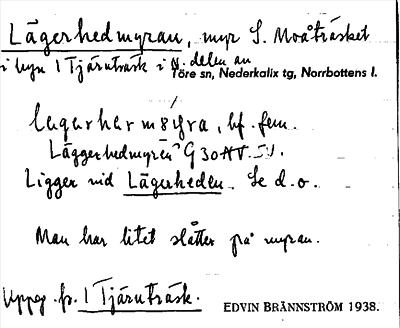 Lägerhedmyran, myr S. Moåträsket
i byn 1 Tjäruträsk i N. delen av
Töre sn, Nederkalix tg, Norrbottens l.
bf. fem.
Läggerhedmyren G30
Ligger vid Lägerheden. Se d.o.
Man har litet slåtter på myran.
Uppg. fr. 1 Tjäruträsk.
EDVIN BRÄNNSTRÖM 1938.